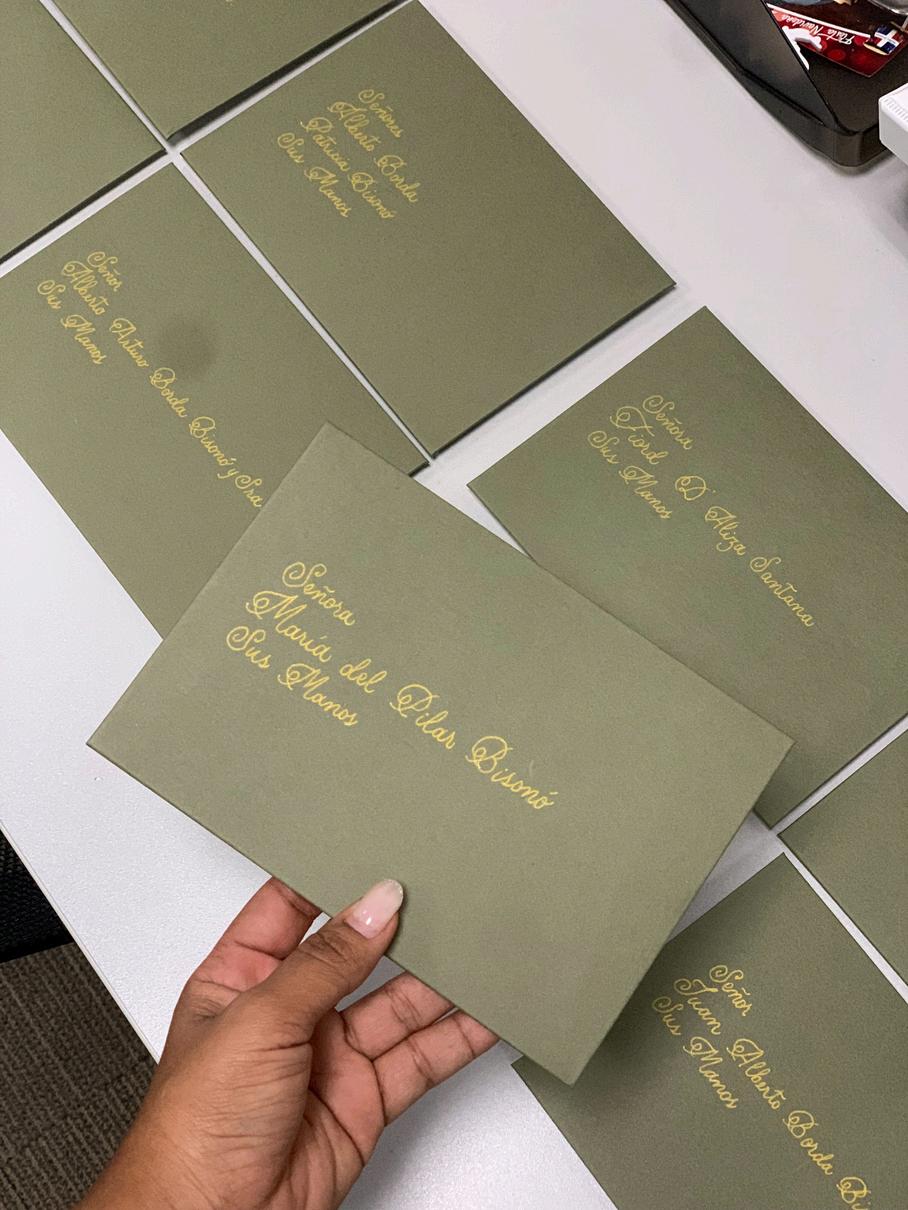 Señores
Alberto Borda
Patricia Bisonó
Sus Manos
Señor
Alberto Arturo Borda Bisonó y Sra
Sus Manos
Señora
Fiord D' Aliza Santana
Sus Manos
Señora
María del Pilar Bisonó
Sus Manos
Señor
Juan Alberto Borda
Sus Manos